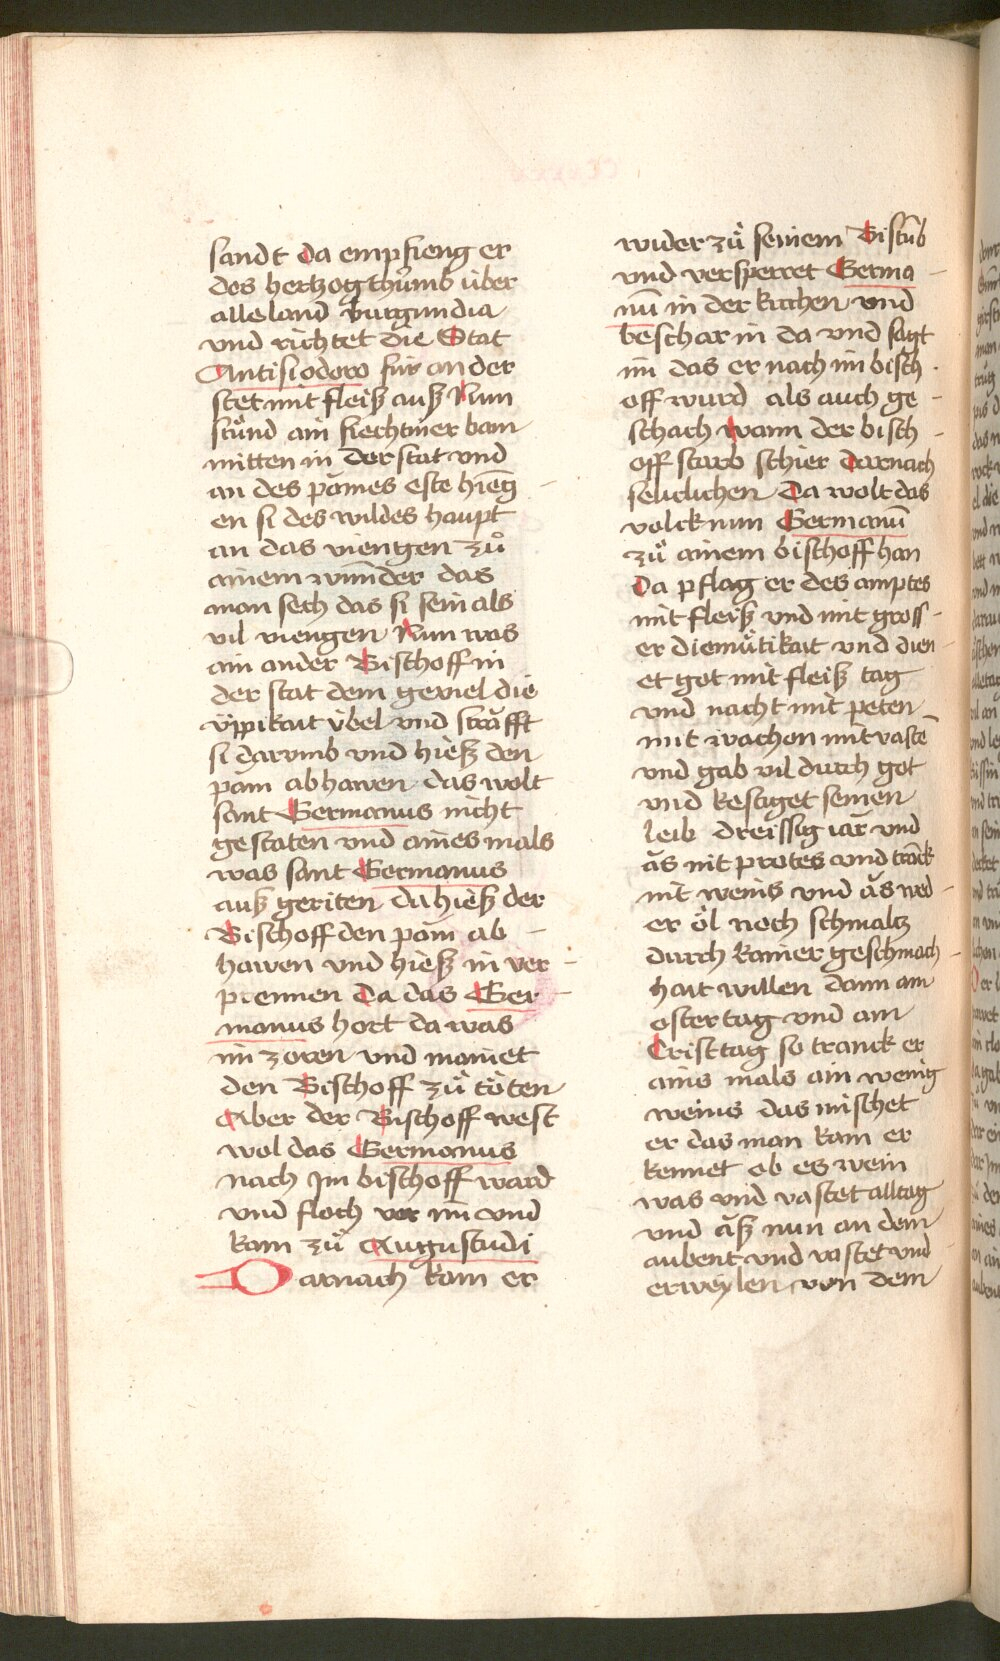 sandt Da empfieng er
des hertzogthůmb über
alle land Burgundia
und richtet die Stat
Antisiodoro für an der
stet mit fleiß auß Nun
stůnd ain fiechtiner bam
mitten in Der stat und
an des pämes este hieng
en si des wildes haupt
an das viengen zů
ainem wunder das
man sech das si sein als
vil viengen Nun was
ain ander Bischoff in
der stat dem geviel die
üppikait übel und sträfft
si darumb und hieß den
pam abhawen das wolt
sant Germanus nicht
gestaten und aines mals
was sant Germanus
auß geriten da hieß der
Bischoff den pam ab
hawen und hieß in ver
prennen Da das Ger
manus hort da was
im zoren und mainet
den Bischoff zů töten
Aber der Bischoff west
wol das Germanus
nach Im bischoff ward
und floch vor im und
kam zů Augustudi
Darnach kam er
wider zů seinem Bistūb
und versperret Germa
nū in der kirchen und
beschar in da und sagt
im das er nach im bisch
off wurd als auch ge
schach wann der bisch
off starb schier darnach
seliclichen Da wolt das
volck nun Germanū
zů ainem bischoff han
Da pflag er des amptes
mit fleiß und mit gross
er diemütikait und dien
et got mit fleiß tag
und nacht mit peten
mit wachen mit vastē
und gab vil durch got
und kestiget seinen
leib dreissig iar und
äs nit protes und tranck
nit weins und äs wed
er öl noch schmaltz
durch kainer geschmach
hait willen dann am
ostertag und am
Cristtag so tranck er
ains mals ain wenig
weins das mischet
er das man kam er
kennet ob es wein
was und vastet alltag
und äß nun an dem
aubent und vastet und
erweylen von dem